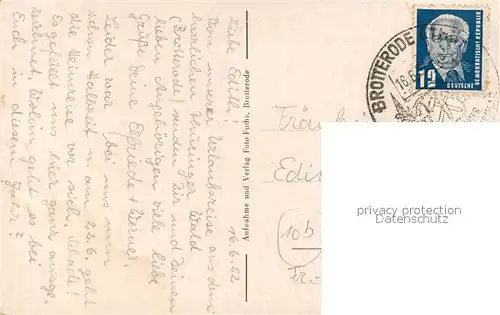 16.6.52
Liebe Edith!
Von unserer Urlaubsreise aus dem
herrlichen Thüringer Wald
(Brotterode) senden Dir und Deinen
lieben Angehörigen viele liebe
Grüße Deine Elfriede + Werner.
Leider war bei uns nun
schon Halbzeit u. am 22.6. geht
die Heimreise vor sich. Schade!
Es gefällt uns hier ganz ausge-
zeichnet. Wohin geht es bei
Euch in diesem Jahr?
Aufnahme und Verlag Foto-Fuchs, Brotterode
BROTTERODE
16.6.
12
DEUTSCHE
DEMOKRATISCHE REPUBLIK
Fräulein
Edi
10b
privacy protection
datenschutz